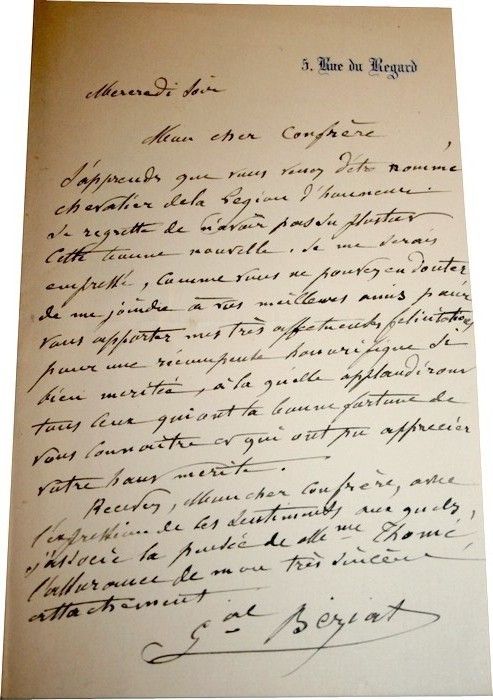 5, Rue du Regard
Mercredi Soir
Mon cher Confrère
J'apprends que vous venez d'être nommé
chevalier de la Légion d'honneur.
Je regrette de n'avoir pas su plustar
Cette bonne nouvelle. Je me serais
empressé, comme vous ne pouvez en douter
de me joindre à vos meilleurs amis pour
vous apporter mes très affectueuses félicitations
pour une récompense honorifique si
bien meritée, à la quelle applaudiront
tous ceux qui ont la bonne fortune de
vous connaître et qui ont pu apprécier
votre haut mérite.
Recevez, Mon cher Confrère, avec
l'expression de ces sentiments aux quels
j'associe la pensée de Mme
l'assurance de mon très sincère
attachement
Gal Béziat